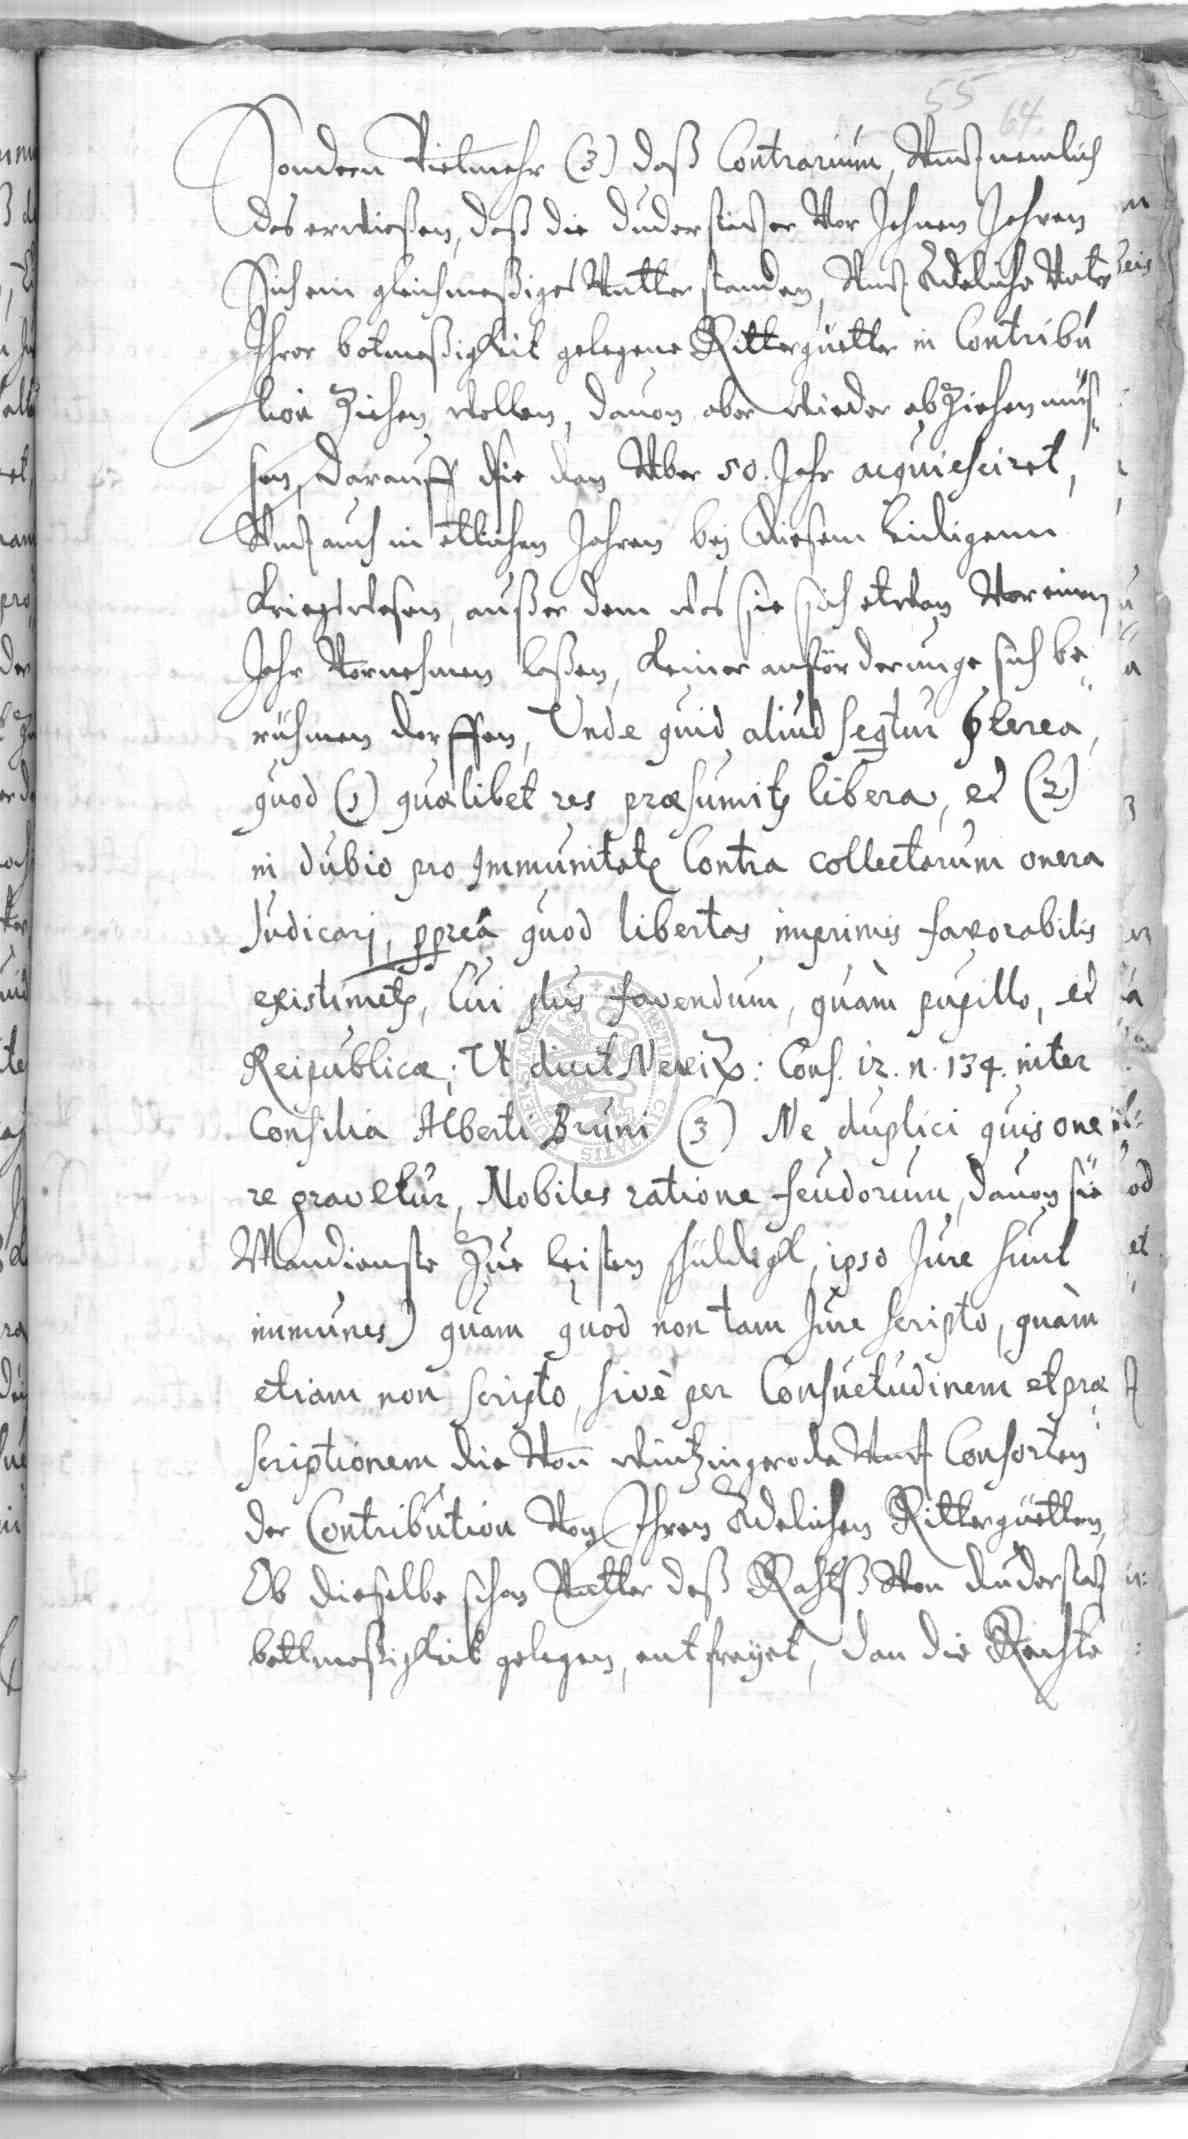 55
64.
Sondern Vielmehr (3) daß Contrarium, Undt nemlich
das erwießen, daß die duderstädter Vor Jehnen Jahren
Sich ein gleichmeßiges Unterstanden, Undt Adeliche Unter
Ihrer botmeßigkeit gelegene Rittergüetter in Contribu
tion ziehen wollen, dauon aber wieder abziehen müs=
sen, darauff sie dan Uber 50. Jahr acquiesciret,
Undt auch in etlichen Jahren bey diesem Leidigenn
Kriegswesen, außer dem was sie sich etwan Vor einem
Jahr Vornehmen laßen, keiner anförderunge sich be=
rühmen dorffen, Unde quid aliud seqtur pterea,
quod (1) quælibet res præsumitr libera, et (2)
in dubio pro Immunitate Contra collectarum onera
Judicarj, ppreà quod libertas imprimis favorabilis
existimetr, Cui plus favendum, quàm pupillo, et
Reipublicæ; Ut dicit Nevizan: Cons. 12. n. 134. inter
Consilia Alberti Bruni (3) Ne duplici quis one
re gravetur, Nobiles ratione feudorum, dauon sie
Mandienste Zue leisten schuldigk, ipso Jure sunt
immunes) quam quod non tam Jure scripto, quàm
etiam non scripto, sivè per Consuetudinem et præ
scriptionem die Von Wintzingeroda Undt Consorten
der Contribution Von Ihren Adelichen Rittergüettern,
Ob dieselbe schon Untter deß Rahtß Von duderstadt
bottmeßigkeit gelegen, entfreyet, dan die Rechte